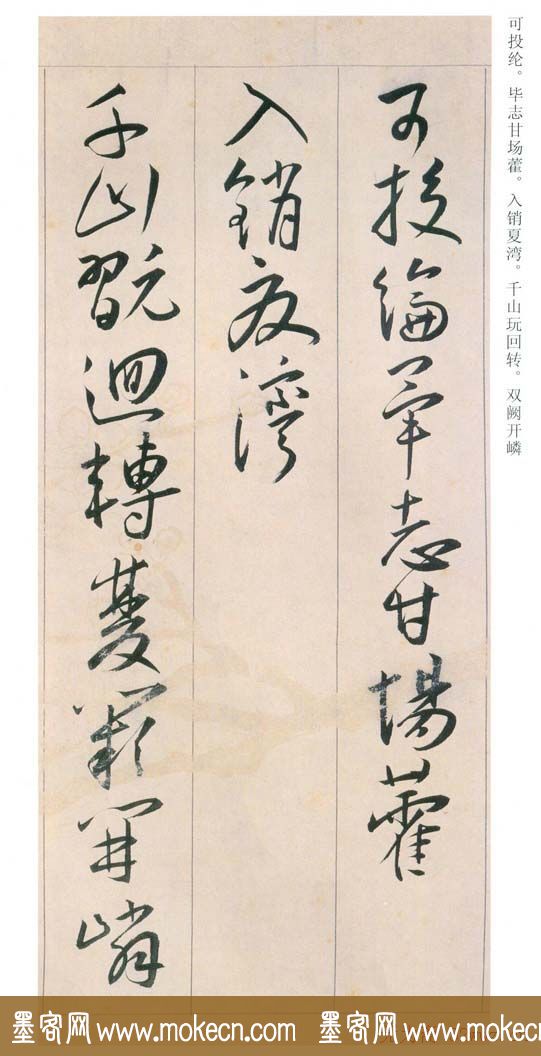 可投纶。毕志甘场藿。入销夏湾。千山玩回转。双阙开嶙
可投綸畢志甘場藿
入銷夏灣
千山翫迴轉雙闕開嶙
墨客网 www.mokecn.com 墨客网 www.mokecn.com